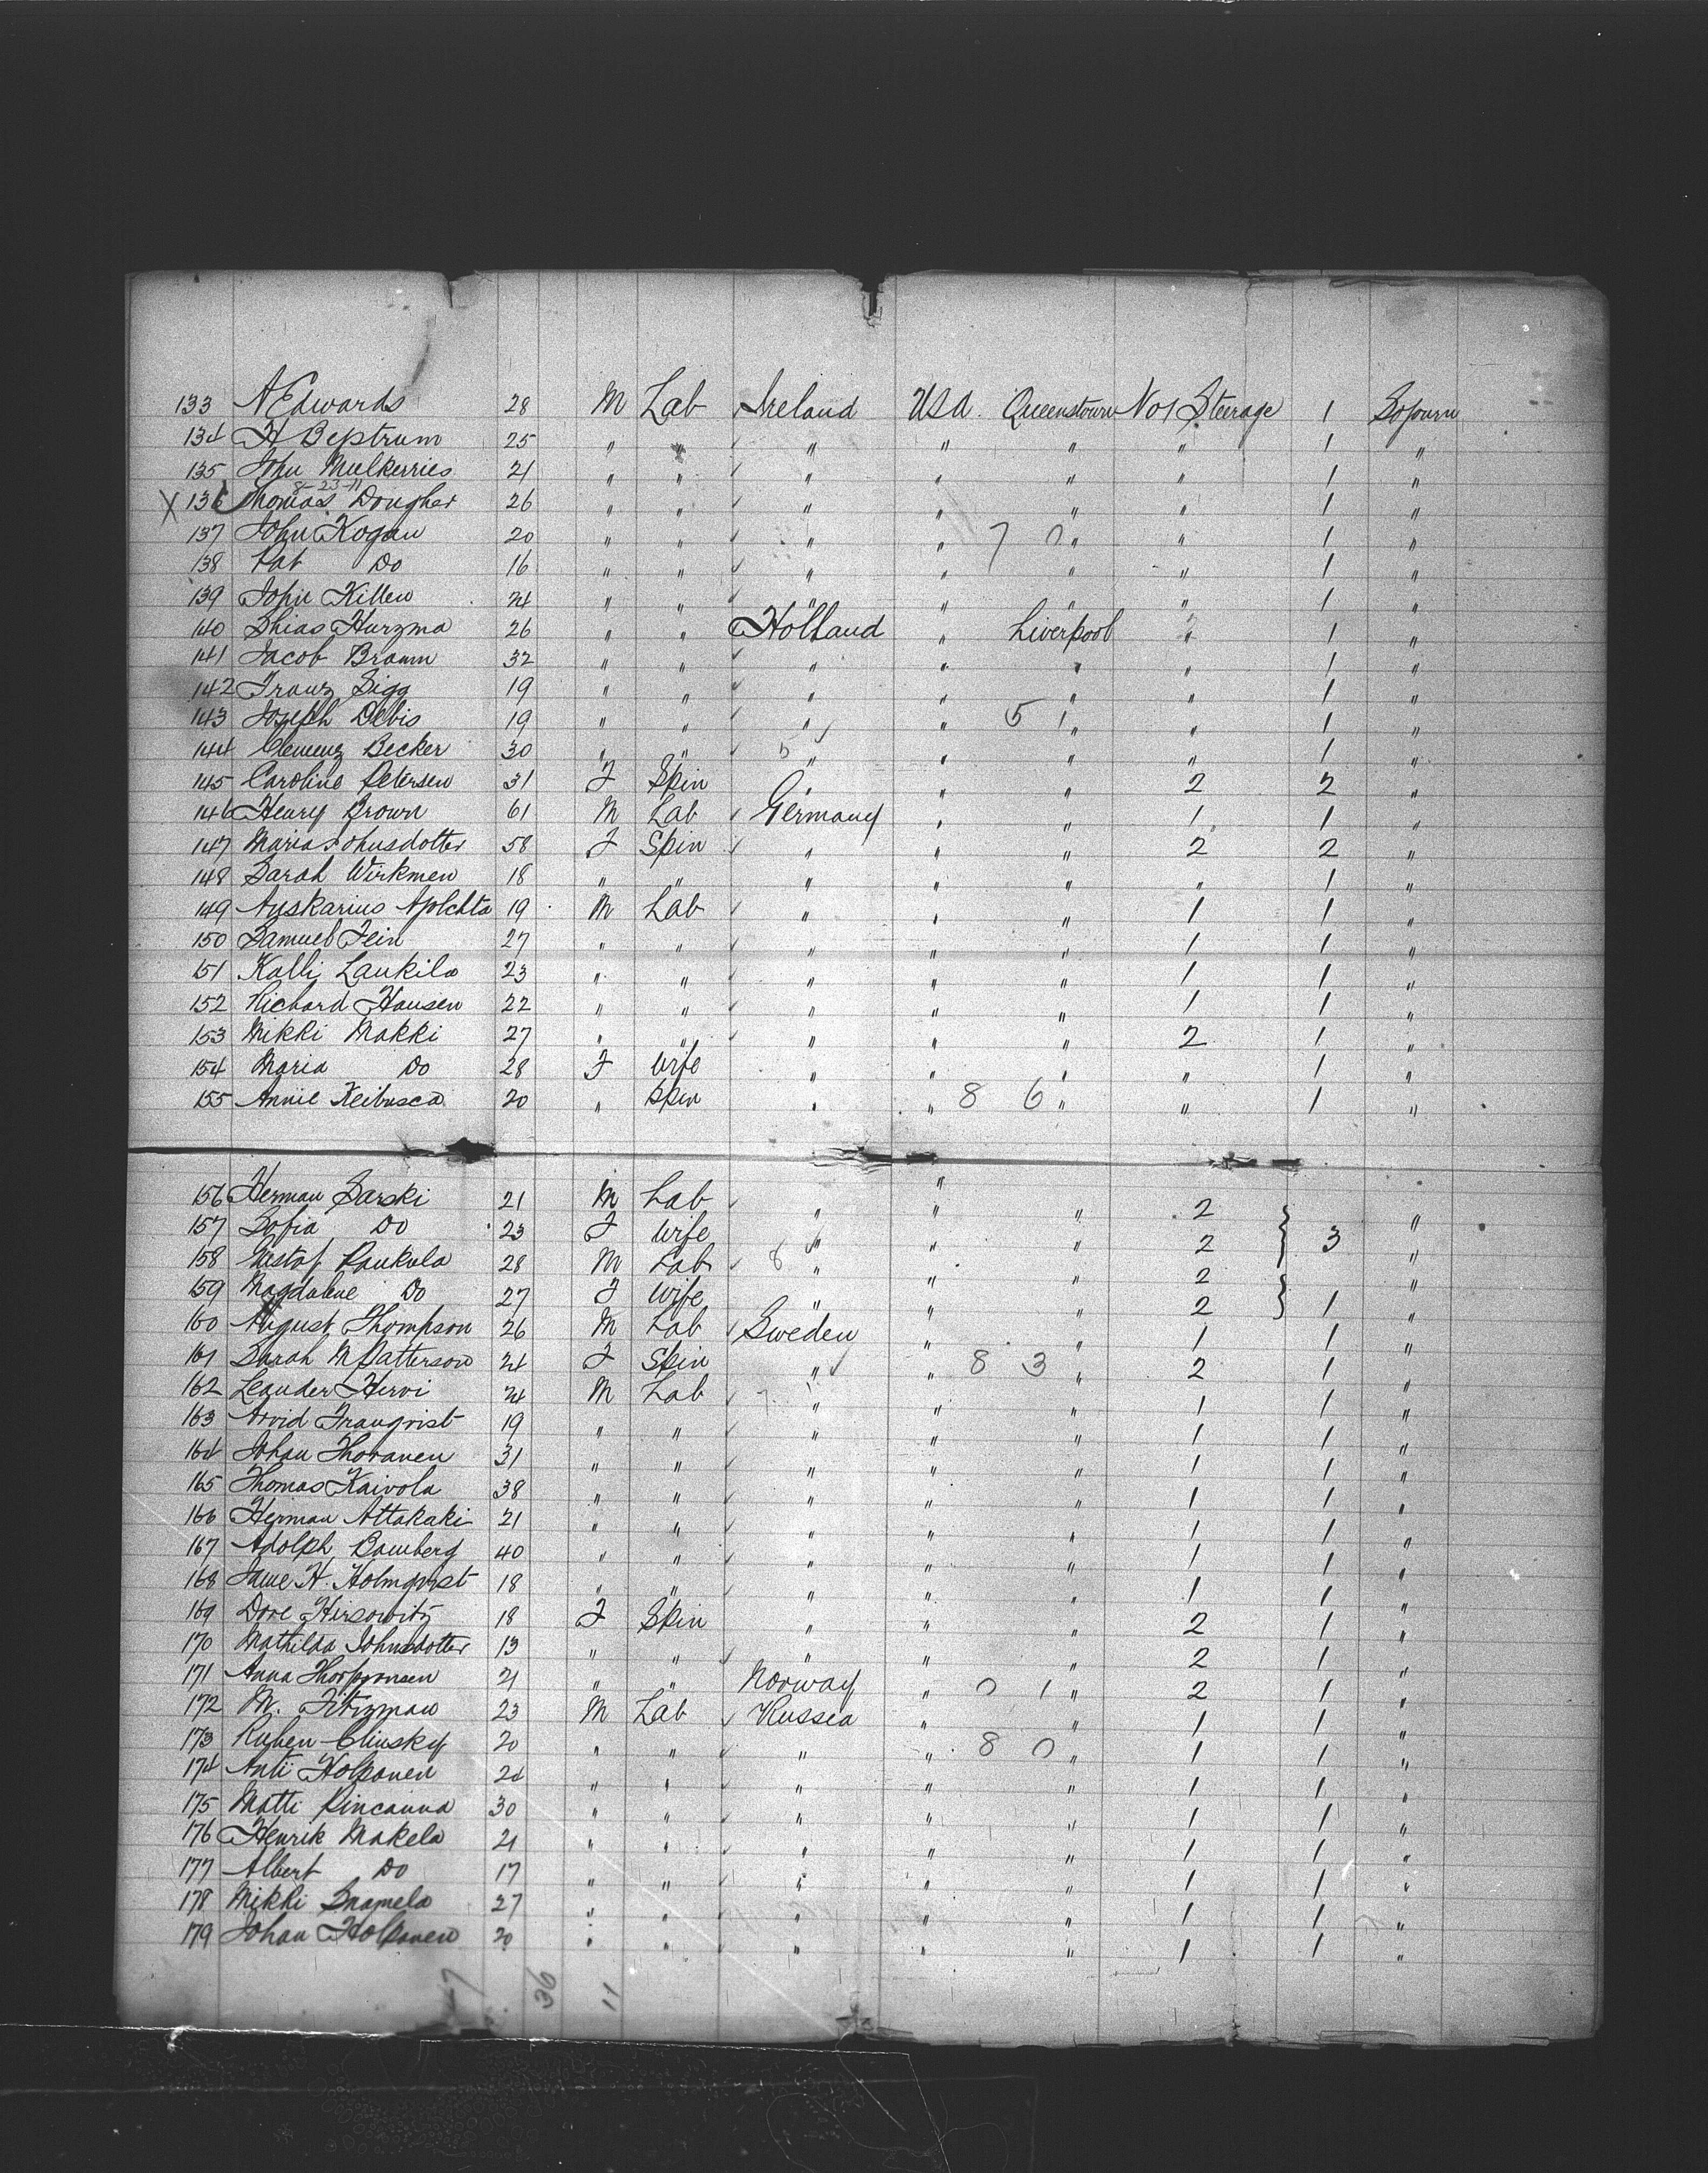 133 A Edwards 28 M Lab Ireland USA. Queenstown No1 Steerage 1 Sojourn
134 H Bepstrum 25 " " " " " " 1 "
135 John Mulkerries 21 " " " " " " 1 "
8-23-11
X 136 Thomas Dougher 26 " " " " " " 1 "
137 John Kogan 20 " " " " 7 0 " " 1 "
138 Pat Do 16 " " " " " " 1 "
139 John Killen 24 " " " " " " 1 "
140 Hurzma 26 " " Holland " Liverpool " 1 "
141 Jacob Braum 32 " " " " " " 1 "
142 Franz Sigg 19 " " " " " " 1 "
143 Joseph Debis 19 " " " " 5 1 " " 1 "
144 Clemenz Becker 30 " " 5 " " " " 1 "
145 Caroline Petersen 31 F Spin " " " 2 2 "
146 Henry Brown 61 M Lab Germany " " 1 1 "
147 Maria Johnsdotter 58 F Spin " " " 2 2 "
148 Sarah Wirkmen 18 " " " " " " 1 "
149 Auskarius 19 M Lab " " " 1 1 "
150 Samuel Fein 27 " " " " " 1 1 "
151 Kalli Laukila 23 " " " " " 1 1 "
152 Richard Hansen 22 " " " " " 1 1 "
153 Mikki Makki 27 " " " " " 2 1 "
154 Maria Do 28 F wife " " " " 1 "
155 Annie Keibusca 20 " Spin " " 8 6 " " 1 "
156 Herman Sarski 21 M Lab " " " 2 "
157 Sofia Do 23 F wife " " " 2 3 "
158 Gustaf Paukula 28 M Lab 8 " " " 2 "
159 Magdalene Do 27 F wife " " " 2 1 "
160 August Thompson 26 M Lab Sweden " " 1 1 "
161 Sarah M Patterson 24 F Spin " " 8 3 " 2 1 "
162 Leander Hirvi 24 M Lab 7 " " " 1 1 "
163 Arvid Franqvist 19 " " " " " 1 1 "
164 Johan Thoranen 31 " " " " " 1 1 "
165 Thomas Kaivola 38 " " " " " 1 1 "
166 Herman Attakaki 21 " " " " " 1 1 "
167 Adolph Bamberg 40 " " " " " 1 1 "
168 H. Holmqvist 18 " " " " " 1 1 "
169 Dore Hirsowitz 18 F Spin " " " 2 1 "
170 Mathilda Johnsdotter 13 " " " " " 2 1 "
171 Anna 21 " " Norway " 0 1 " 2 1 "
172 M. Fitizman 23 M Lab Russia " " 1 1 "
173 Ruben Clinsky 20 " " " " 8 0 " 1 1 "
174 Anti Holpanen 24 " " " " " 1 1 "
175 Matti Pincanna 30 " " " " " 1 1 "
176 Henrik Makela 21 " " " " " 1 1 "
177 Albert Do 17 " " " " " 1 1 "
178 Mikki Snamela 27 " " " " " 1 1 "
179 Johan Holpanen 20 " " " " " 1 1 "
47 36 11